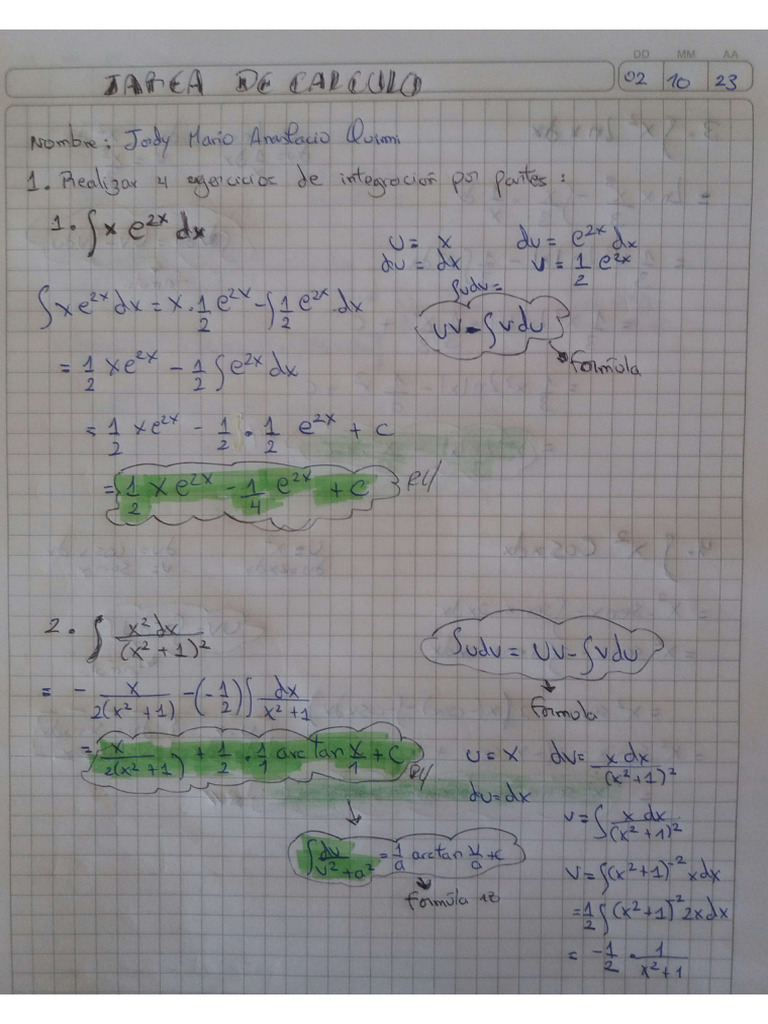 DD MM AA
TAREA DE CALCULO 02 10 23
Nombre: Jordy Mario Anastacio Quimi
1. Realizar 4 ejercicios de integración por partes:
1. ∫ x e^{2x} dx
u = x dv = e^{2x} dx
du = dx v = 1/2 e^{2x}
∫udv =
uv - ∫vdu
formula
∫xe^{2x}dx = x·1/2 e^{2x} - ∫1/2 e^{2x} dx
= 1/2 xe^{2x} - 1/2 ∫e^{2x}dx
= 1/2 xe^{2x} - 1/2 · 1/2 e^{2x} + C
= 1/2 x e^{2x} - 1/4 e^{2x} + C R//
2. ∫ x²dx/(x²+1)²
∫udv = uv - ∫vdu
formula
= - x/2(x²+1) - (-1/2) ∫ dx/x²+1
= x/2(x²+1) + 1/2 · 1/1 arc tan x/1 + C R//
∫ dv/v²+a² = 1/a arctan v/a + c
formula 18
u = x dv = x dx/(x²+1)²
du = dx
v = ∫ x dx/(x²+1)²
v = ∫(x²+1)^{-2} xdx
= 1/2 ∫(x²+1)^{-2} 2xdx
= -1/2 · 1/x²+1